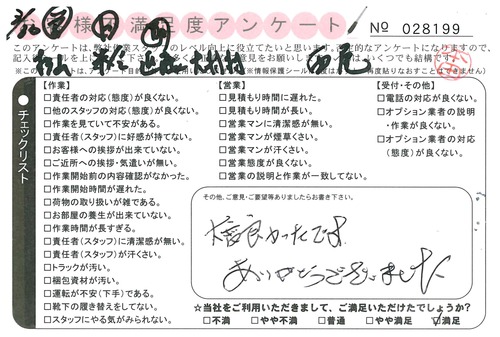 お客様不満足度アンケート
No 028199
このアンケートは、弊社
【作業】
□責任者の対応(態度)が良くない。
□他のスタッフの対応(態度)が良くない。
□作業を見ていて不安がある。
□責任者(スタッフ)に好感が持てない。
□お客様への挨拶が出来ていない。
□ご近所への挨拶・気遣いが無い。
□作業開始前の内容確認がなかった。
□作業開始時間が遅れた。
□荷物の取り扱いが雑である。
□お部屋の養生が出来ていない。
□作業時間が長すぎる。
□責任者(スタッフ)に清潔感が無い。
□責任者(スタッフ)が汗くさい。
□トラックが汚い。
□梱包資材が汚い。
□運転が不安(下手)である。
□靴下の履き替えをしてない。
□スタッフにやる気がみられない。
【営業】
□見積もり時間に遅れた。
□見積もり時間が長い。
□営業マンに清潔感が無い。
□営業マンが煙草くさい。
□営業マンが汗くさい。
□営業態度が良くない。
□営業の説明と作業が一致してない。
【受付・その他】
□電話の対応が良くない。
□オプション業者の説明
・作業が良くない。
□オプション業者の対応
(態度)が良くない。
チェックリスト
その他、ご意見・ご要望等ありましたらお書き下さい。
良かったです
ありがとうございました
☆当社をご利用いただきまして、ご満足いただけたでしょうか?
□不満 □やや不満 □普通 □やや満足 ☑満足